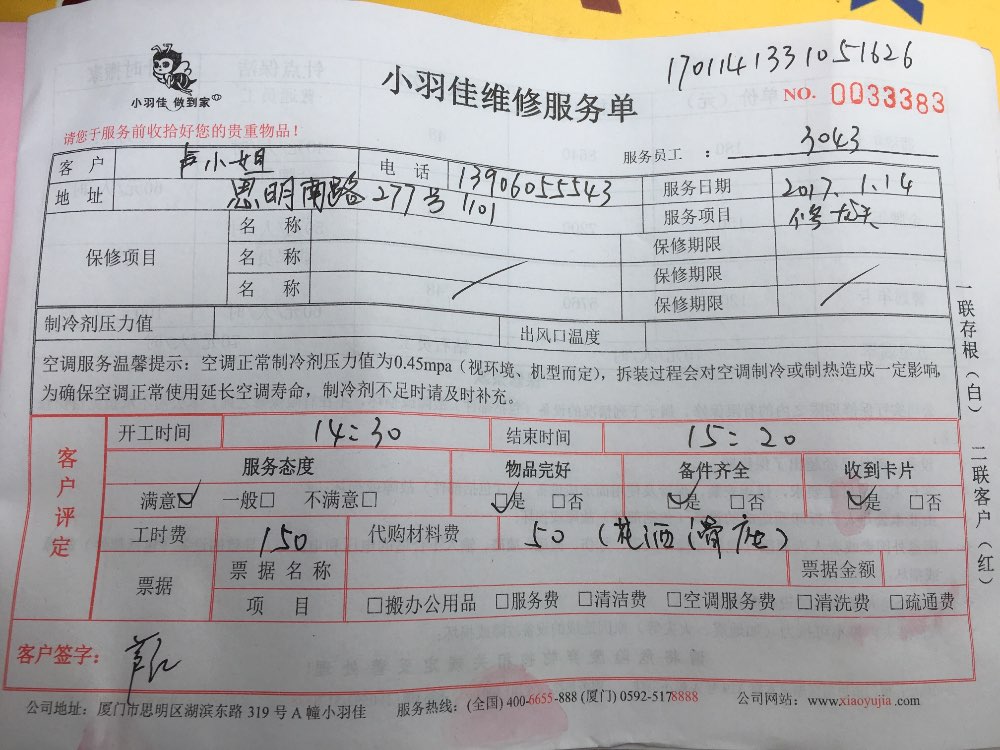 170114133105​1626
小羽佳 做到家
小羽佳维修服务单
NO. 0033383
请您于服务前收拾好您的贵重物品！
服务员工 ： 3043
客 户 卢小姐 电 话 13906055543 服务日期 2017.1.14
地 址 思明南路277号1101 服务项目 修龙头
保修项目 名 称 保修期限
名 称 保修期限
名 称 保修期限
制冷剂压力值 出风口温度
空调服务温馨提示：空调正常制冷剂压力值为0.45mpa（视环境、机型而定），拆装过程会对空调制冷或制热造成一定影响，
为确保空调正常使用延长空调寿命，制冷剂不足时请及时补充。
一联存根（白） 二联客户（红）
客户评定
开工时间 14:30 结束时间 15:20
服务态度 物品完好 备件齐全 收到卡片
满意☑ 一般□ 不满意□ ☑是 □否 ☑是 □否 ☑是 □否
工时费 150 代购材料费 50（花洒滑座）
票据 票据名称 票据金额
项 目 □搬办公用品 □服务费 □清洁费 □空调服务费 □清洗费 □疏通费
客户签字：
公司地址：厦门市思明区湖滨东路 319 号 A 幢小羽佳 服务热线：(全国) 400-6655-888 (厦门) 0592-5178888 公司网站：www.xiaoyujia.com